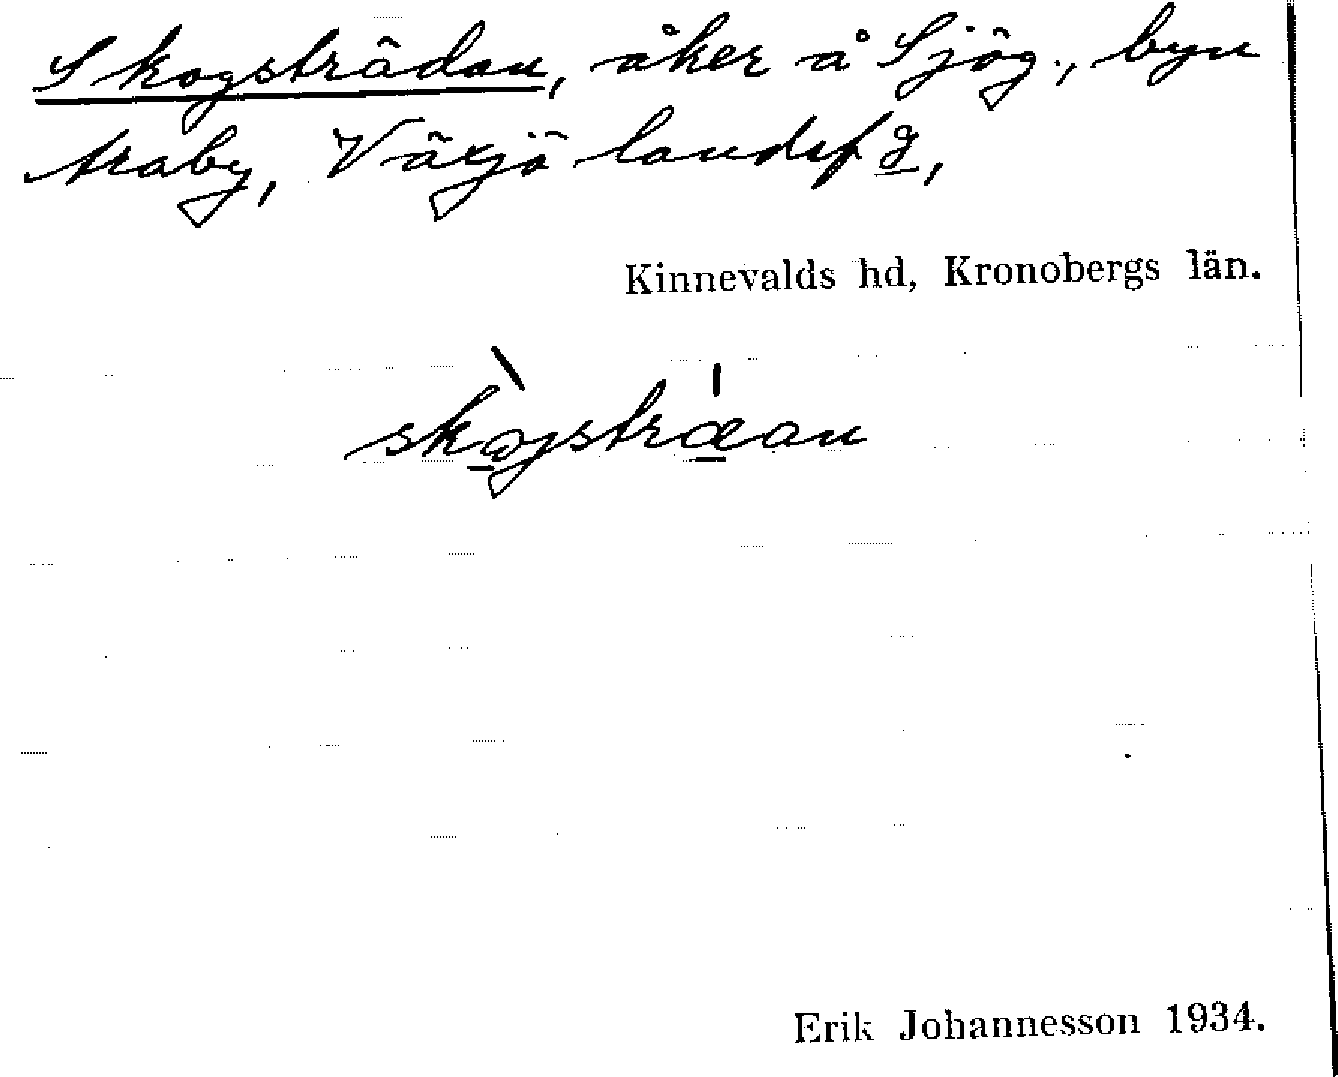 Skogsträdan, åker å Sjög., byn
Araby, Växjö landsfg,
Kinnevalds hd, Kronobergs län.
skogstræan
Erik Johannesson 1934.